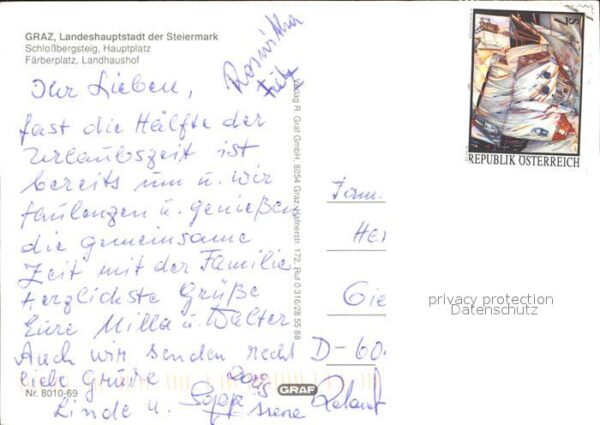 GRAZ, Landeshauptstadt der Steiermark
Schloßbergsteig, Hauptplatz
Färberplatz, Landhaushof
Roswitha
Ihr Lieben,
fast die Hälfte der
Urlaubszeit ist
bereits um u. wir
faulenzen u. genießen
die gemeinsame
Zeit mit der Familie.
Herzlichste Grüße
Eure Milla u. Walter
Auch wir senden recht
liebe Grüße
Linde u.
Doris
Nr. 8010-69
GRAF
Verlag R. Graf GmbH, 8054 Graz, Hafnerstr. 172, Ruf 0 316/28 55 88
REPUBLIK ÖSTERREICH
Fam.
He
Gie
D-60
privacy protection
Datenschutz